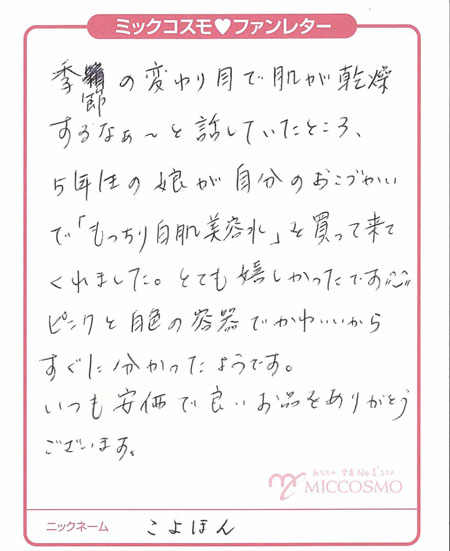 ミックコスモ♥ファンレター
季節の変わり目で肌が乾燥
するなぁ〜と話していたところ、
5年生の娘が自分のおこづかい
で「もっちり白肌美容水」を買って来て
くれました。とても嬉しかったです
ピンクと白色の容器でかわいいから
すぐに分かったようです。
いつも安価で良いお品をありがとう
ございます。
あなたの 愛着 No.1 コスメ
MICCOSMO
ニックネーム こよほん